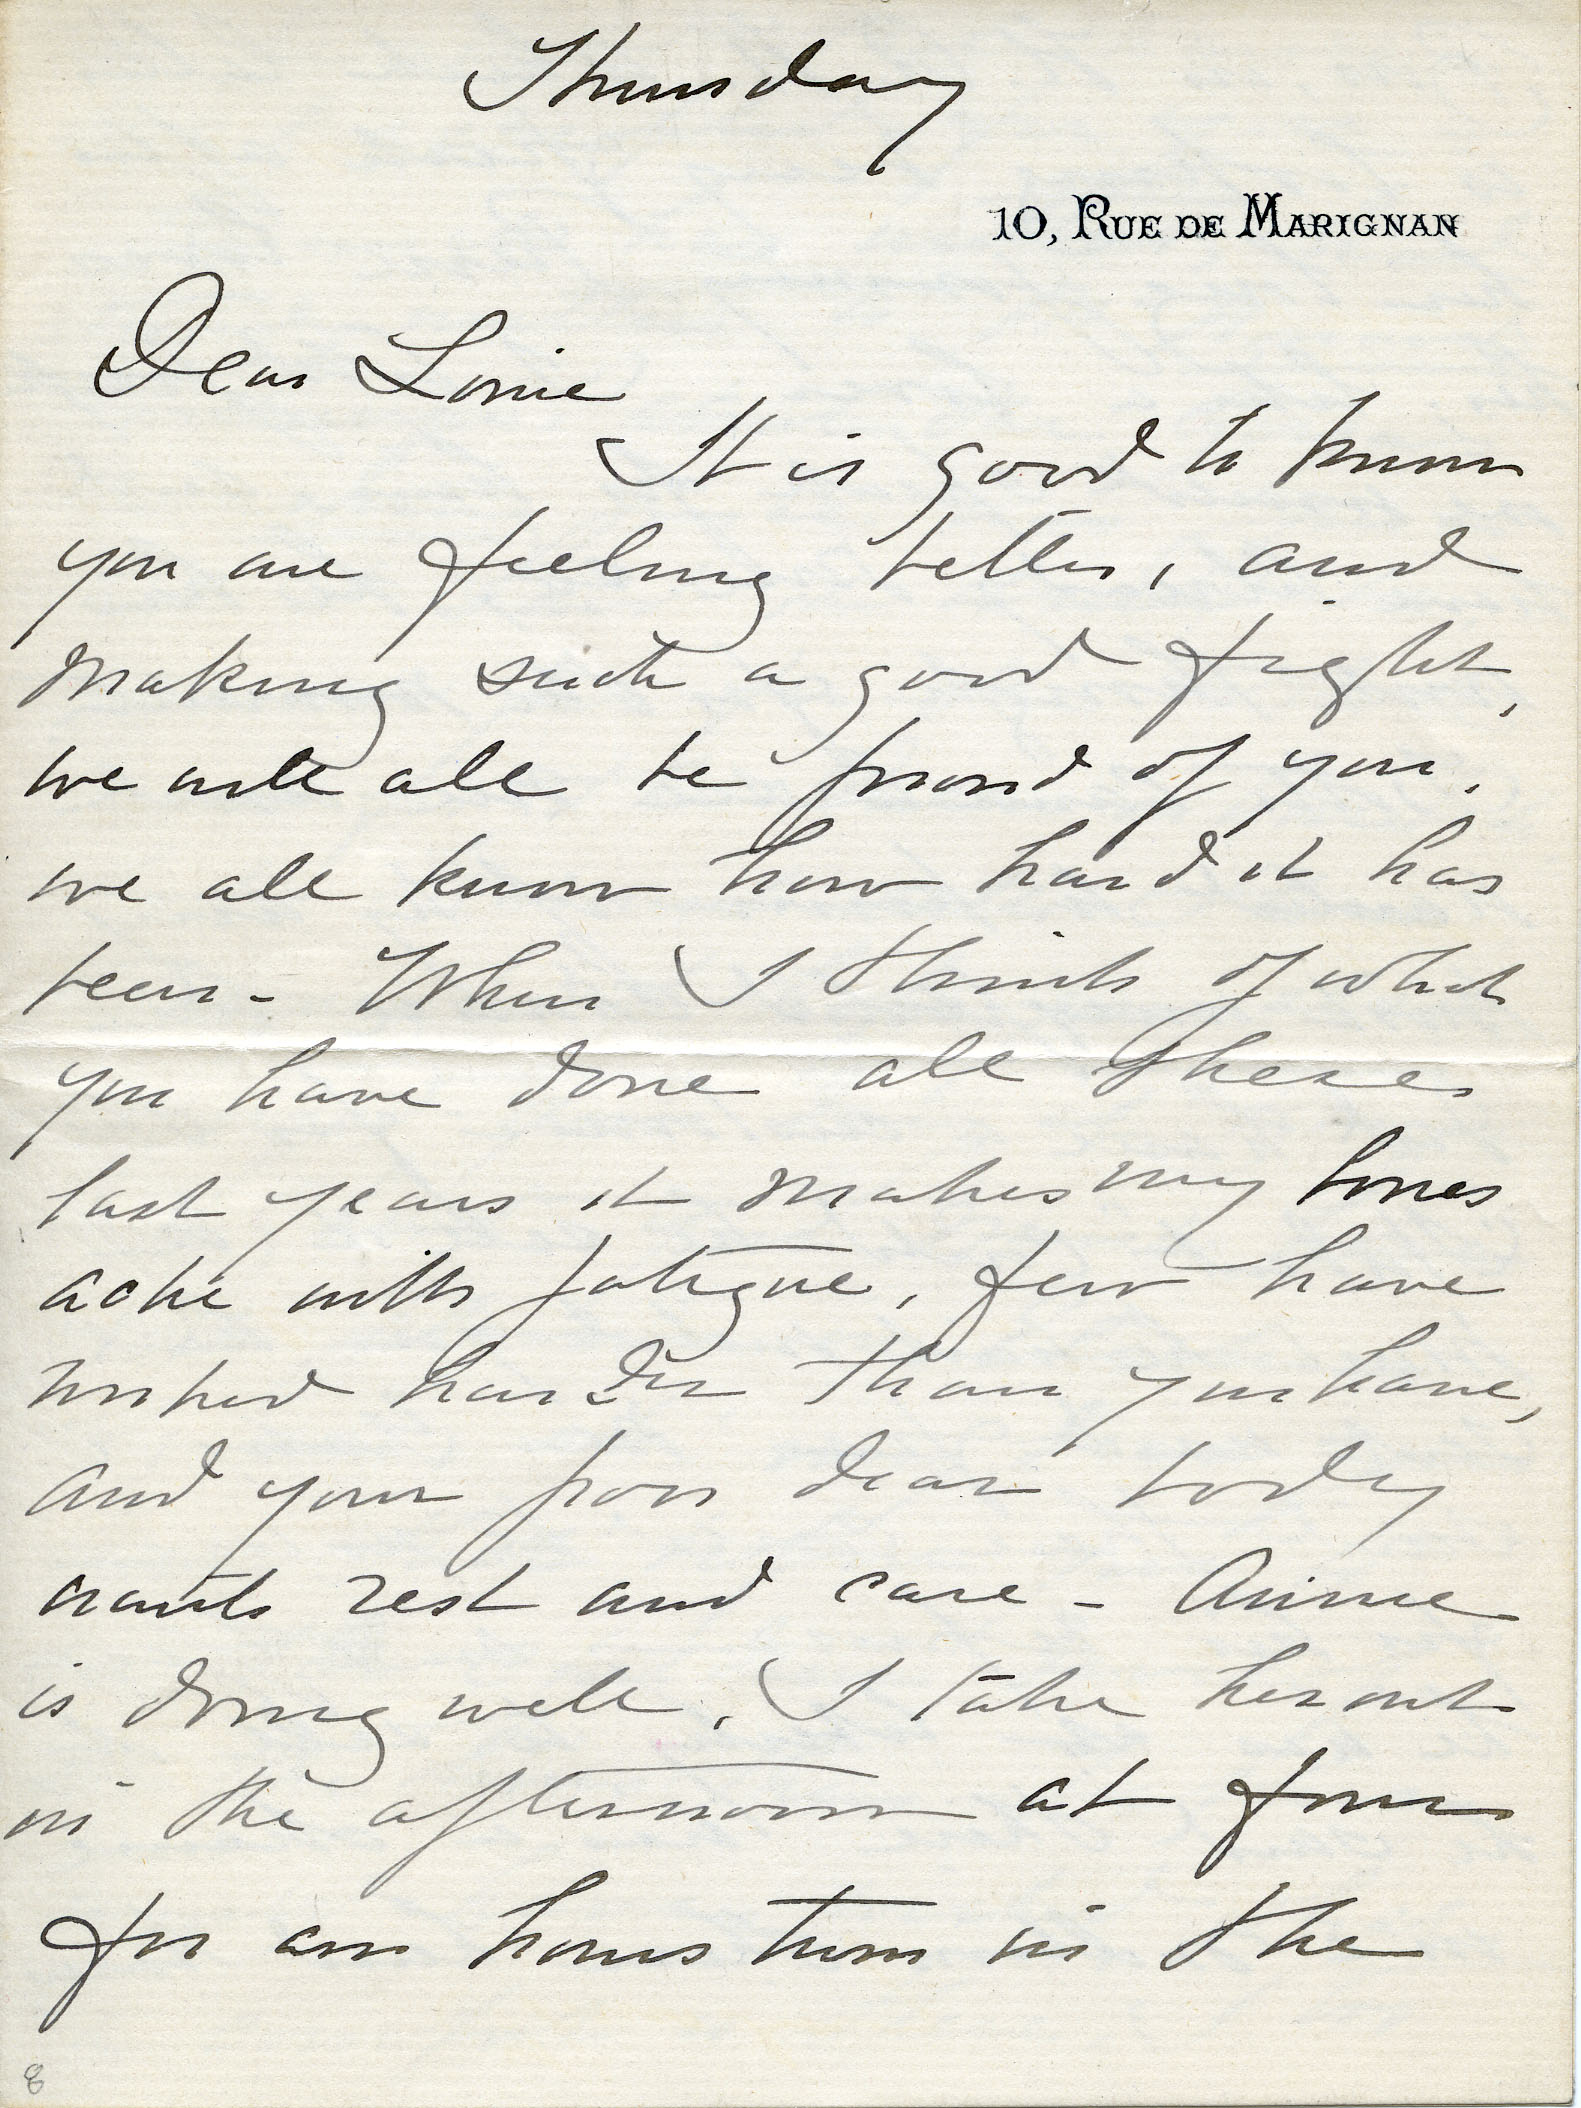 Thursday
10, RUE DE MARIGNAN
Dear Louie
It is good to know
you are feeling better, and
making such a good fight,
we will all be proud of you.
we all know how hard it has
been - When I think of what
you have done all these
last years it makes my bones
ache with fatigue, few have
worked harder than you have,
and your poor dear body
wants rest and care - Annie
is doing well. I take her out
in the afternoon at four
for an hours turn in the
8